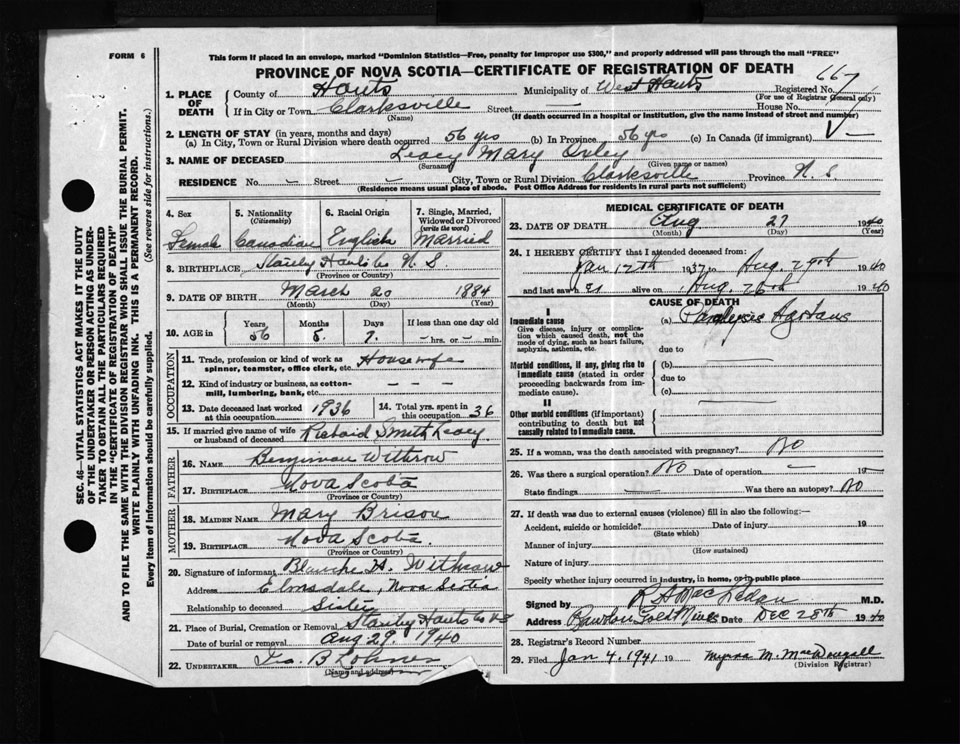 FORM 6
This form if placed in an envelope, marked "Dominion Statistics—Free, penalty for improper use $300," and properly addressed will pass through the mail "FREE"
PROVINCE OF NOVA SCOTIA—CERTIFICATE OF REGISTRATION OF DEATH
SEC. 46—VITAL STATISTICS ACT MAKES IT THE DUTY
OF THE UNDERTAKER OR PERSON ACTING AS UNDER-
TAKER TO OBTAIN ALL THE PARTICULARS REQUIRED
IN THE "CERTIFICATE OF REGISTRATION OF DEATH"
AND TO FILE THE SAME WITH THE DIVISION REGISTRAR WHO SHALL ISSUE THE BURIAL PERMIT.
WRITE PLAINLY WITH UNFADING INK. THIS IS A PERMANENT RECORD.
Every item of information should be carefully supplied. (See reverse side for instructions.)
1. PLACE OF DEATH County of Hants Municipality of West Hants Registered No. 667
(For use of Registrar General only)
If in City or Town Clarksville Street House No.
(Name) (If death occurred in a hospital or institution, give the name instead of street and number)
2. LENGTH OF STAY (in years, months and days)
(a) In City, Town or Rural Division where death occurred 56 yrs (b) In Province 56 yrs (c) In Canada (if immigrant) —
3. NAME OF DECEASED Leacy Mary
(Surname) (Given name or names)
RESIDENCE No. – Street – City, Town or Rural Division Clarksville Province N. S.
(Residence means usual place of abode. Post Office Address for residents in rural parts not sufficient)
4. Sex 5. Nationality (Citizenship) 6. Racial Origin 7. Single, Married, Widowed or Divorced (write the word)
Female Canadian English Married
8. BIRTHPLACE Stanley Hants Co N S
(Province or Country)
9. DATE OF BIRTH March 20 1884
(Month) (Day) (Year)
10. AGE in Years Months Days If less than one day old
56 5 7 – hrs. or – min.
OCCUPATION
11. Trade, profession or kind of work as spinner, teamster, office clerk, etc. Housewife
12. Kind of industry or business, as cotton-mill, lumbering, bank, etc. – – –
13. Date deceased last worked at this occupation 1936 14. Total yrs. spent in this occupation 36
15. If married give name of wife or husband of deceased Richard Smith Leacy
FATHER
16. NAME Benjiman Withrow
17. BIRTHPLACE Nova Scotia
(Province or Country)
MOTHER
18. MAIDEN NAME Mary Brison
19. BIRTHPLACE Nova Scotia.
(Province or Country)
20. Signature of informant Blanche H. Withrow
Address Elmsdale, Nova Scotia
Relationship to deceased Sister
21. Place of Burial, Cremation or Removal Stanley Hants Co N S
Date of burial or removal Aug 29. 1940
22. UNDERTAKER
(Name and address)
MEDICAL CERTIFICATE OF DEATH
23. DATE OF DEATH Aug 27 1940
(Month) (Day) (Year)
24. I HEREBY CERTIFY that I attended deceased from:
Jan 12th 1937 to Aug. 1940
and last saw h er alive on Aug. 26th 1940
CAUSE OF DEATH
I
Immediate cause (a) Paralysis Agitans
Give disease, injury or complication which caused death, not the mode of dying, such as heart failure, asphyxia, asthenia, etc.
due to
Morbid conditions, if any, giving rise to immediate cause (stated in order proceeding backwards from immediate cause). (b)
due to
(c)
II
Other morbid conditions (if important) contributing to death but not causally related to immediate cause.
25. If a woman, was the death associated with pregnancy? No
26. Was there a surgical operation? No Date of operation – 19
State findings – Was there an autopsy? No
27. If death was due to external causes (violence) fill in also the following:—
Accident, suicide or homicide? Date of injury 19
(State which)
Manner of injury
(How sustained)
Nature of injury
Specify whether injury occurred in industry, in home, or in public place
Signed by M.D.
Address Rawdon Gold Mines Date Dec 28th 1940
28. Registrar's Record Number
29. Filed Jan 4, 1941 19 Myrna M. MacDougall
(Division Registrar)